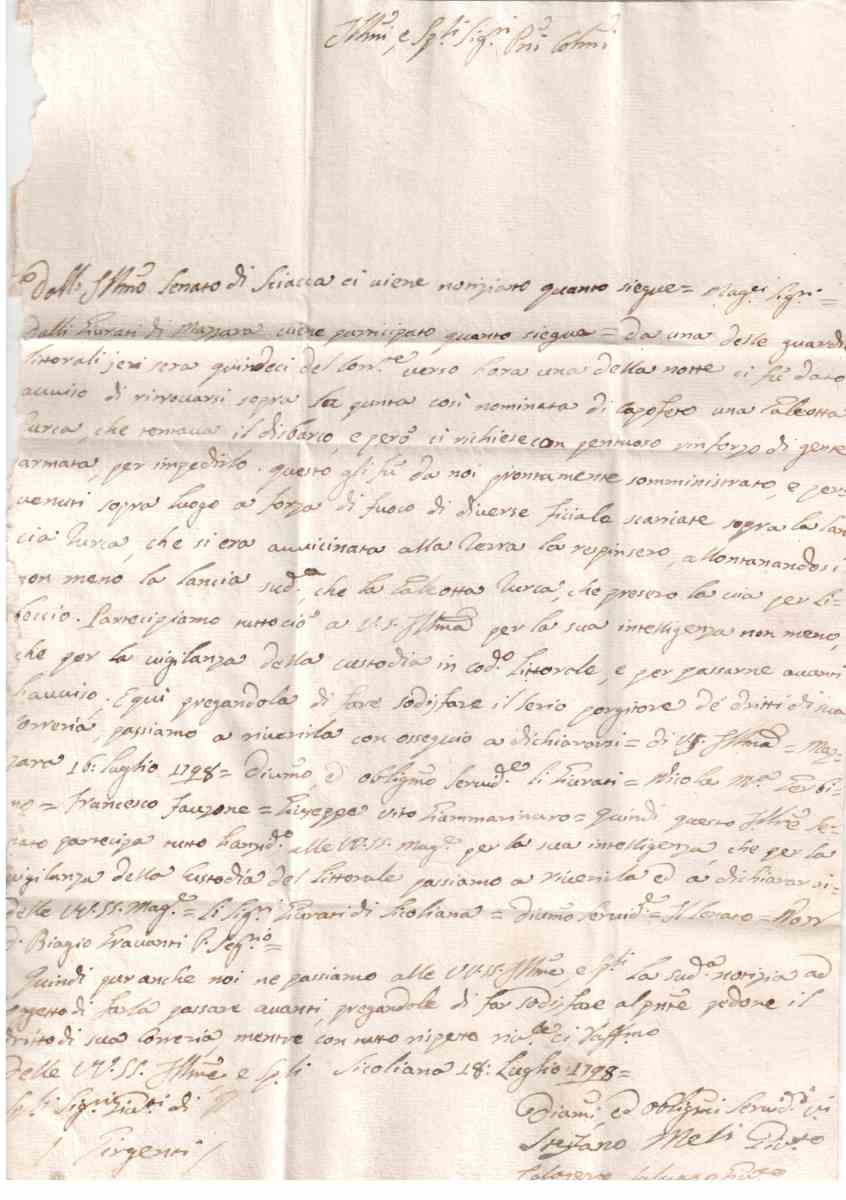 Illmi, e Sp.li Sig.ri Pni Colmi
Dall' Illmo Senato di Sciacca ci viene notiziato quanto siegue = Mag.ci Sig.ri =
Dalli Giurati di Mazzara viene participato quanto siegue = da una delle guardie
littorali jeri sera quindeci del Corr.e verso l'ora una della notte ci fù dato
avviso di ritrovarsi sopra la punta così nominata di Capofeto una Galeotta
Turca, che tentava il disbarco, e però ci richiese con rinforzo di gente
armata, per impedirlo. Questo gli fù da noi prontamente somministrato, e per
venuti sopra luogo a forza di fuoco di diverse scaricate sopra la lan
cia Turca, che si era avvicinata alla Terra la respinsero, allontanandosi
non meno la lancia sud.a, che la Galeotta Turca, che presero la via per Li=
boccio. Partecipiamo tutto ciò a V.S. Illma per la sua intelligenza non meno,
che per la vigilanza della custodia in cod.o littorale, e per passarne avanti
l'avviso. E qui pregandola di fare sodisfare il Serio porgitore de' dritti di sua
Correria, passiamo a riverirla con ossequio a dichiararci = di VS. Illma = Maz=
zara 16: Luglio 1798 = Divmo, ed obligmo Servid.e li Giurati = Nicola M.a
no = Francesco = Giuseppe Vito Giammarinaro = Quindi questo Illre Se=
nato partecipa tutto l'anzid.o alle VV.SS. Mag.e per la sua intelligenza che per la
vigilanza della Custodia del littorale passiamo a riverirla ed a dichiararci =
delle VV.SS. Mag.e = li Sig.ri Giurati di Sicoliana = divmo Servid.e = Il Senato =
D. Biagio P. Seg.rio =
Quindi pur anche noi ne passiamo alle VV.SS. Illme, e Sp.li la sud.a notizia ad
oggetto di farla passare avanti, pregandole di far sodisfare al pnte pedone il
dritto di sua Correria, mentre con tutto rispetto ci raffmo
delle VV. SS. Illme e Sp.li Sicoliana 18: Luglio 1798 =
Sp.li Sig.ri Giu.ti di
Girgenti
Divmi, ed obligmi Servid.ri
Stefano Meli Giu.to
Giu.to